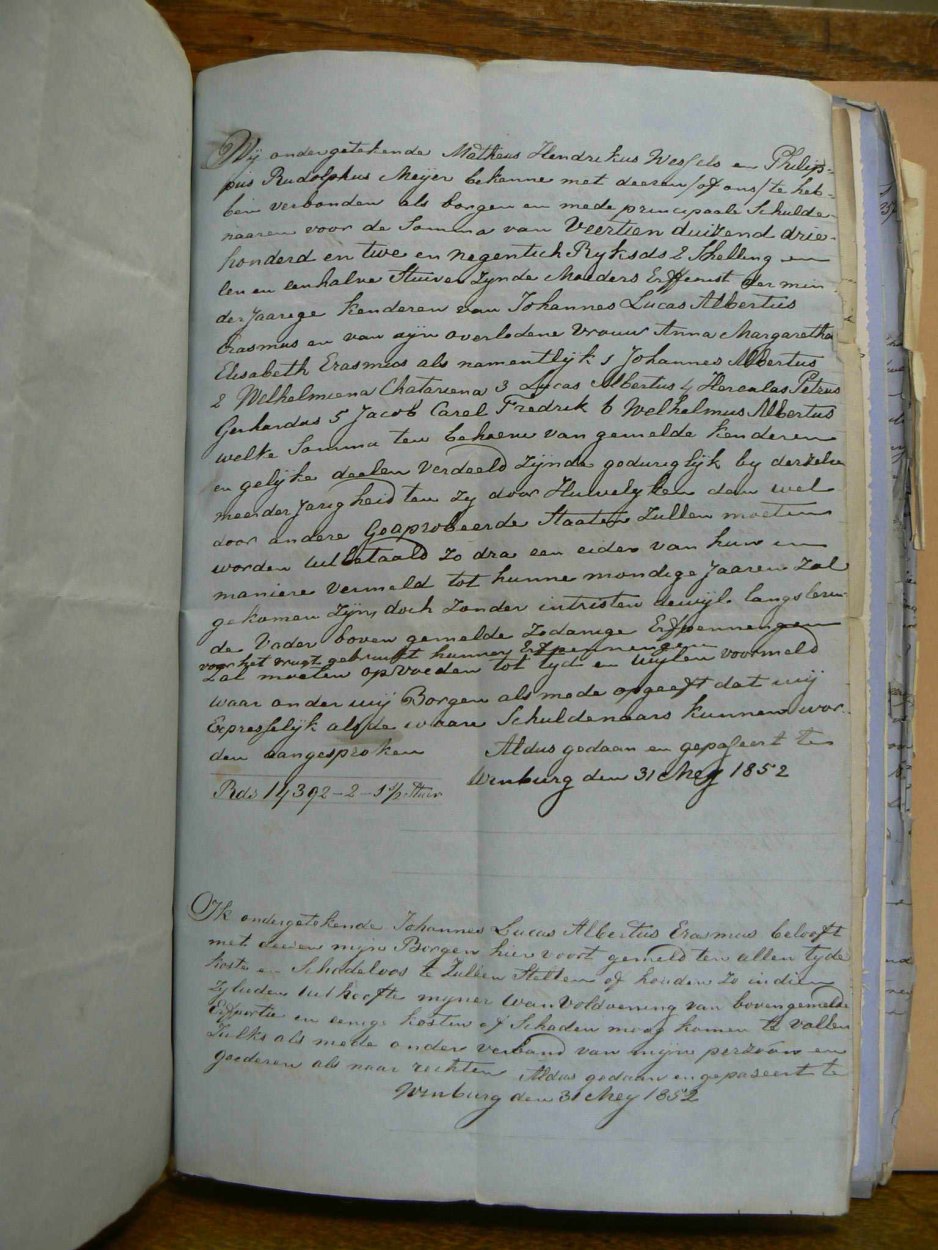 Wij ondergetekende Matheus Hendrikus Wessels en Philip=
pus Rudolphus Meyer bekenne met deesen /of ons/ te heb=
ben verbonden als borgen en mede principaale Schulde=
naaren voor de Somma van Veertien duizend drie=
honderd en twe en negentich Ryksds 2 Schelling en
een en een halve Stuiver Zynde Moeders Erffenist der min
derjaarege kenderen van Johannes Lucas Albertus
Erasmus en van zyn overledene Vrouw Anna Margaretha
Elisabeth Erasmus als namentlijk 1 Johannes Albertus
2 Welhelmiena Chatariena 3 Lucas Albertus 4 Herculas Petrus
Gerhardus 5 Jacob Carel Fredrik 6 Welhelmus Albertus
welke Somma ten behoeve van gemelde kenderen
en gelijke deelen verdeeld Zijnde geduriglijk by derzelve
meerderjarigheid ten zy door Huwelyken dan wel
door andere Geaprobeerde Staaten Zullen moeten
worden uitbetaald Zo dra een eider van hun in
maniere vermeld tot hunne mondige Jaaren Zal
gekomen Zijn, doch Zonder intristen dewijl langsleven
de Vader boven gemelde Zodanige Erfpennengen
voor het vrugt gebruikt hunner Erfpennengen
Zal moeten opvoeden tot tyd en wylen voormeld
waar onder wij Borgen als mede opgeeft dat wij
Expresselijk als de waare Schuldenaars kunnen wor=
den aangesproken Aldus gedaan en gepaseert te
Winburg den 31 Mey 1852
Rds 14,392-2-1½ Stuiv
Ik ondergetekende Johannes Lucas Albertus Erasmus belooft
met deesen mijn Borgen hier voort gemeld ten allen tyde
koste en Schadeloos te Zullen Stellen of houden Zo indien
Zyluden uit hoofte myner wanvoldoening van bovengemelde
Erfportie in eenige kosten of Schaden mogt komen te vallen
Zulks als mede onder verband van mijn perzoon en
goederen als naar rechten Aldus gedaan en gepaseert te
Winburg den 31 Mey 1852